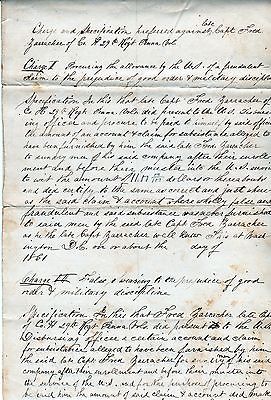 Charge and Specification preferred against late Capt Fred
Zarracher of Co. H 29th Regt Penna. Vols
Charge I Procuring the allowance by the U.S. of a fraudulent
claim to the prejudice of good order & military discipline
Specification In this that late Capt Fred Zarracher Co
H 29th Regt Penna. Vols did present to the U.S. Disbursing
officer and procure to be paid to himself, by said officer
the amount of an account & claim for subsistence alleged to
have been furnished by him the said late Fred Zarracher
to sundry men of his said company after their enroll
ment and before their muster into the U.S. service
to wit the amount of dollars or thereabouts
and did certify to the same as correct and just whereas
the said claim & account where wholly false and
fraudulent and said subsistence was never furnished
to said men by the said late Capt Fred Zarracher
as he the late Capt Fred Zarracher well knew at Wash
ington D.C. on or about the day of
1861
Charge II False swearing to the prejudice of good
order & military discipline
Specification In this that Fred Zarracher late Capt
of Co. H 29th Regt Penna Vols. did present to the U.S.
Disbursing officer a certain account and claim
for subsistence alleged to have been furnished by him
the said late Capt. Fred Zarracher for men of his said
company after their enrollment and before their muster into
the service of the U.S. and for the purpose of procuring to
be paid him the amount of said claim & account did make